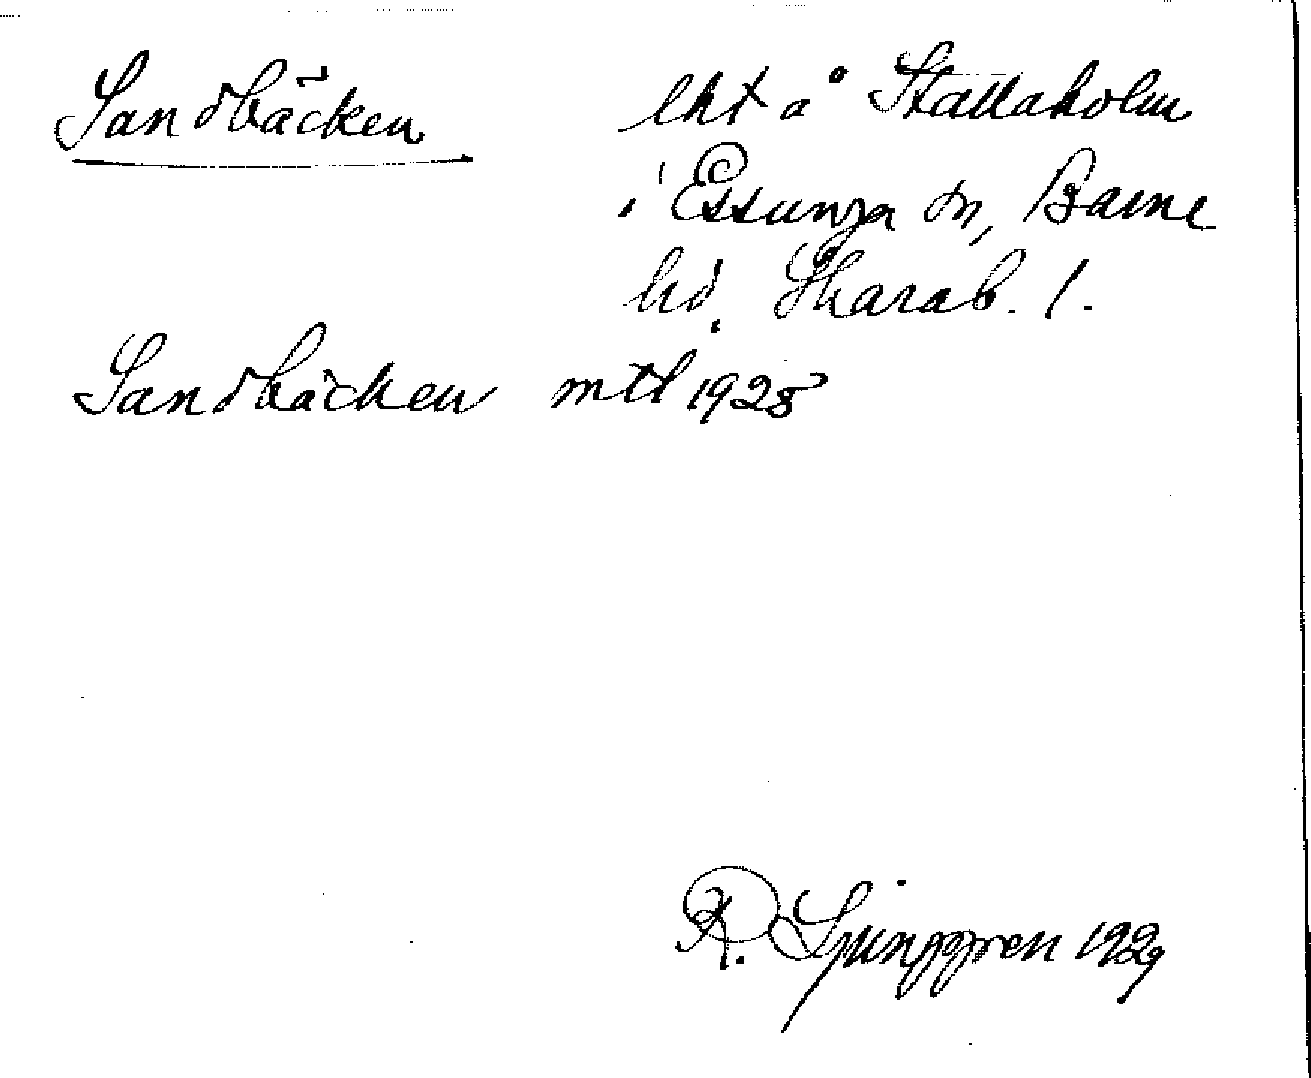 Sandbäcken lht å Stallaholm
i Essunga sn, Barne
hd, Skarab. l.
Sandbäcken mtl 1925
R. Ljunggren 1929